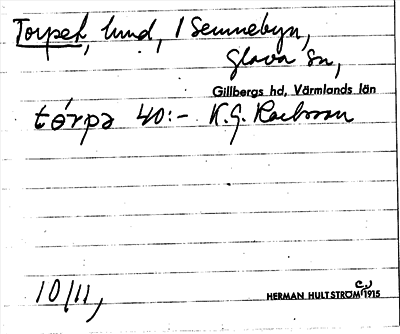 Torpet, lund, 1 Sennebyn,
Glava sn,
Gillbergs hd, Värmlands län
tórpə 40:- K.G. Karlsson
10/11,
HERMAN HULTSTRÖM 1915